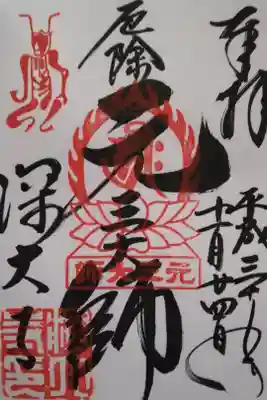 奉拝
平成三十年
十一月廿四日
厄除
元三大師
元三大師
深大寺